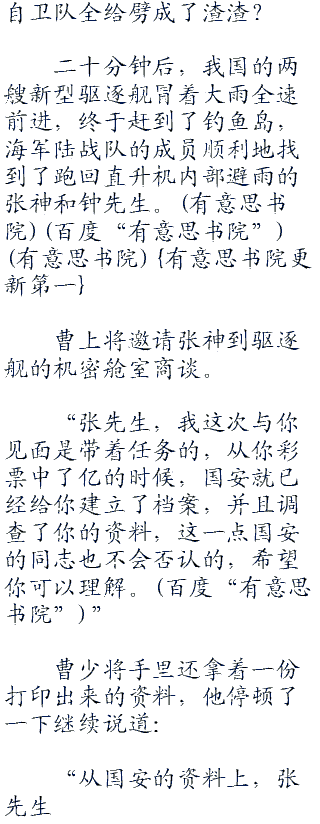 自卫队全给劈成了渣渣？
二十分钟后，我国的两
艘新型驱逐舰冒着大雨全速
前进，终于赶到了钓鱼岛，
海军陆战队的成员顺利地找
到了跑回直升机内部避雨的
张神和钟先生。(有意思书
院)(百度“有意思书院”)
(有意思书院){有意思书院更
新第一}
曹上将邀请张神到驱逐
舰的机密舱室商谈。
“张先生，我这次与你
见面是带着任务的，从你彩
票中了亿的时候，国安就已
经给你建立了档案，并且调
查了你的资料，这一点国安
的同志也不会否认的，希望
你可以理解。(百度“有意思
书院”)”
曹少将手里还拿着一份
打印出来的资料，他停顿了
一下继续说道:
“从国安的资料上，张
先生